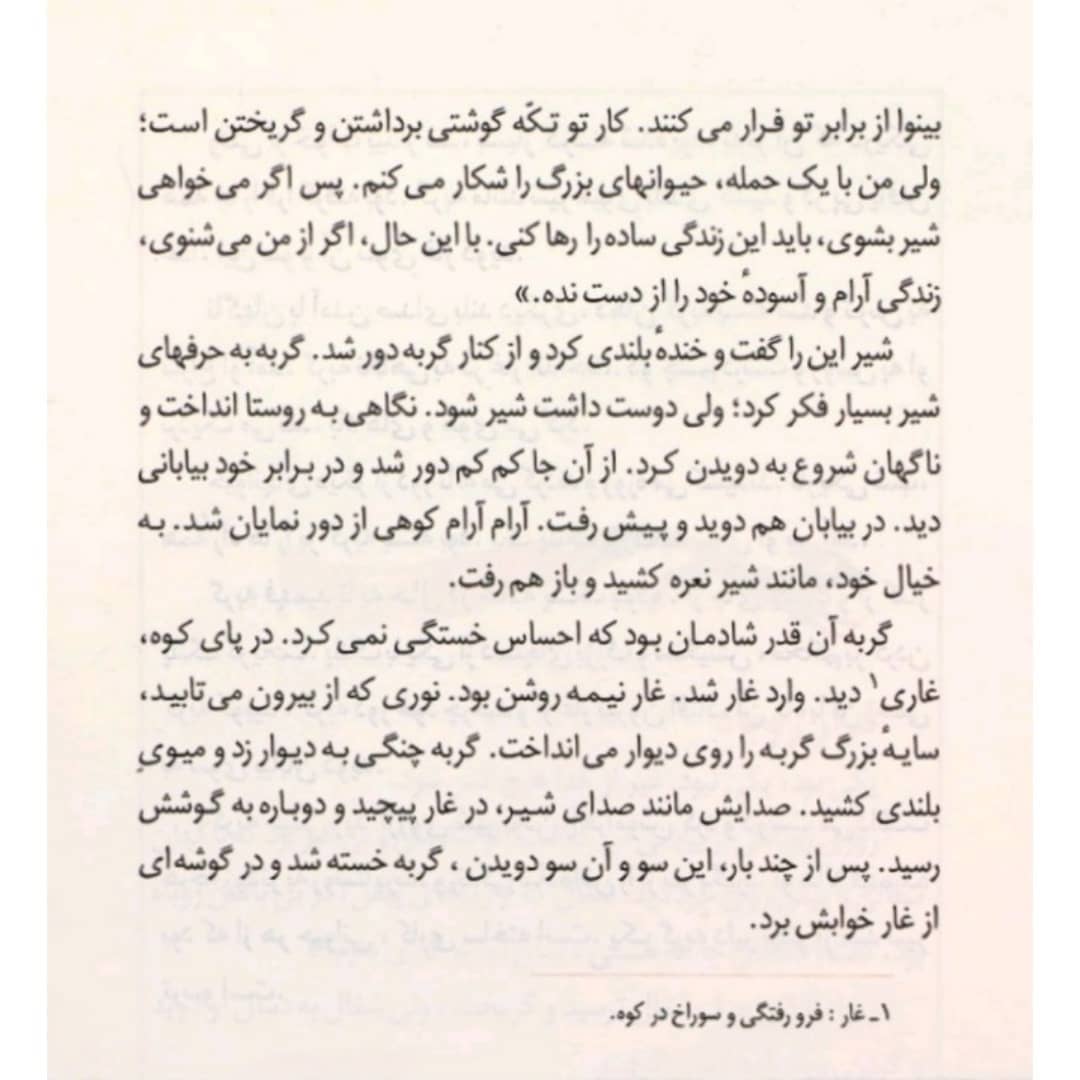 بینوا از برابر تو فرار می کنند. کار تو تکّه گوشتی برداشتن و گریختن است؛
ولی من با یک حمله، حیوانهای بزرگ را شکار می کنم. پس اگر می خواهی
شیر بشوی، باید این زندگی ساده را رها کنی. با این حال، اگر از من می شنوی،
زندگی آرام و آسودهٔ خود را از دست نده.»
شیر این را گفت و خندهٔ بلندی کرد و از کنار گربه دور شد. گربه به حرفهای
شیر بسیار فکر کرد؛ ولی دوست داشت شیر شود. نگاهی به روستا انداخت و
ناگهان شروع به دویدن کرد. از آن جا کم کم دور شد و در برابر خود بیابانی
دید. در بیابان هم دوید و پیش رفت. آرام آرام کوهی از دور نمایان شد. به
خیال خود، مانند شیر نعره کشید و باز هم رفت.
گربه آن قدر شادمان بود که احساس خستگی نمی کرد. در پای کوه،
غاری۱ دید. وارد غار شد، غار نیمه روشن بود. نوری که از بیرون می تابید،
سایهٔ بزرگ گربه را روی دیوار می انداخت. گربه چنگی به دیوار زد و میوی
بلندی کشید. صدایش مانند صدای شیر، در غار پیچید و دوباره به گوشش
رسید. پس از چند بار، این سو و آن سو دویدن ، گربه خسته شد و در گوشه ای
از غار خوابش برد.
۱ـ غار : فرو رفتگی و سوراخ در کوه.